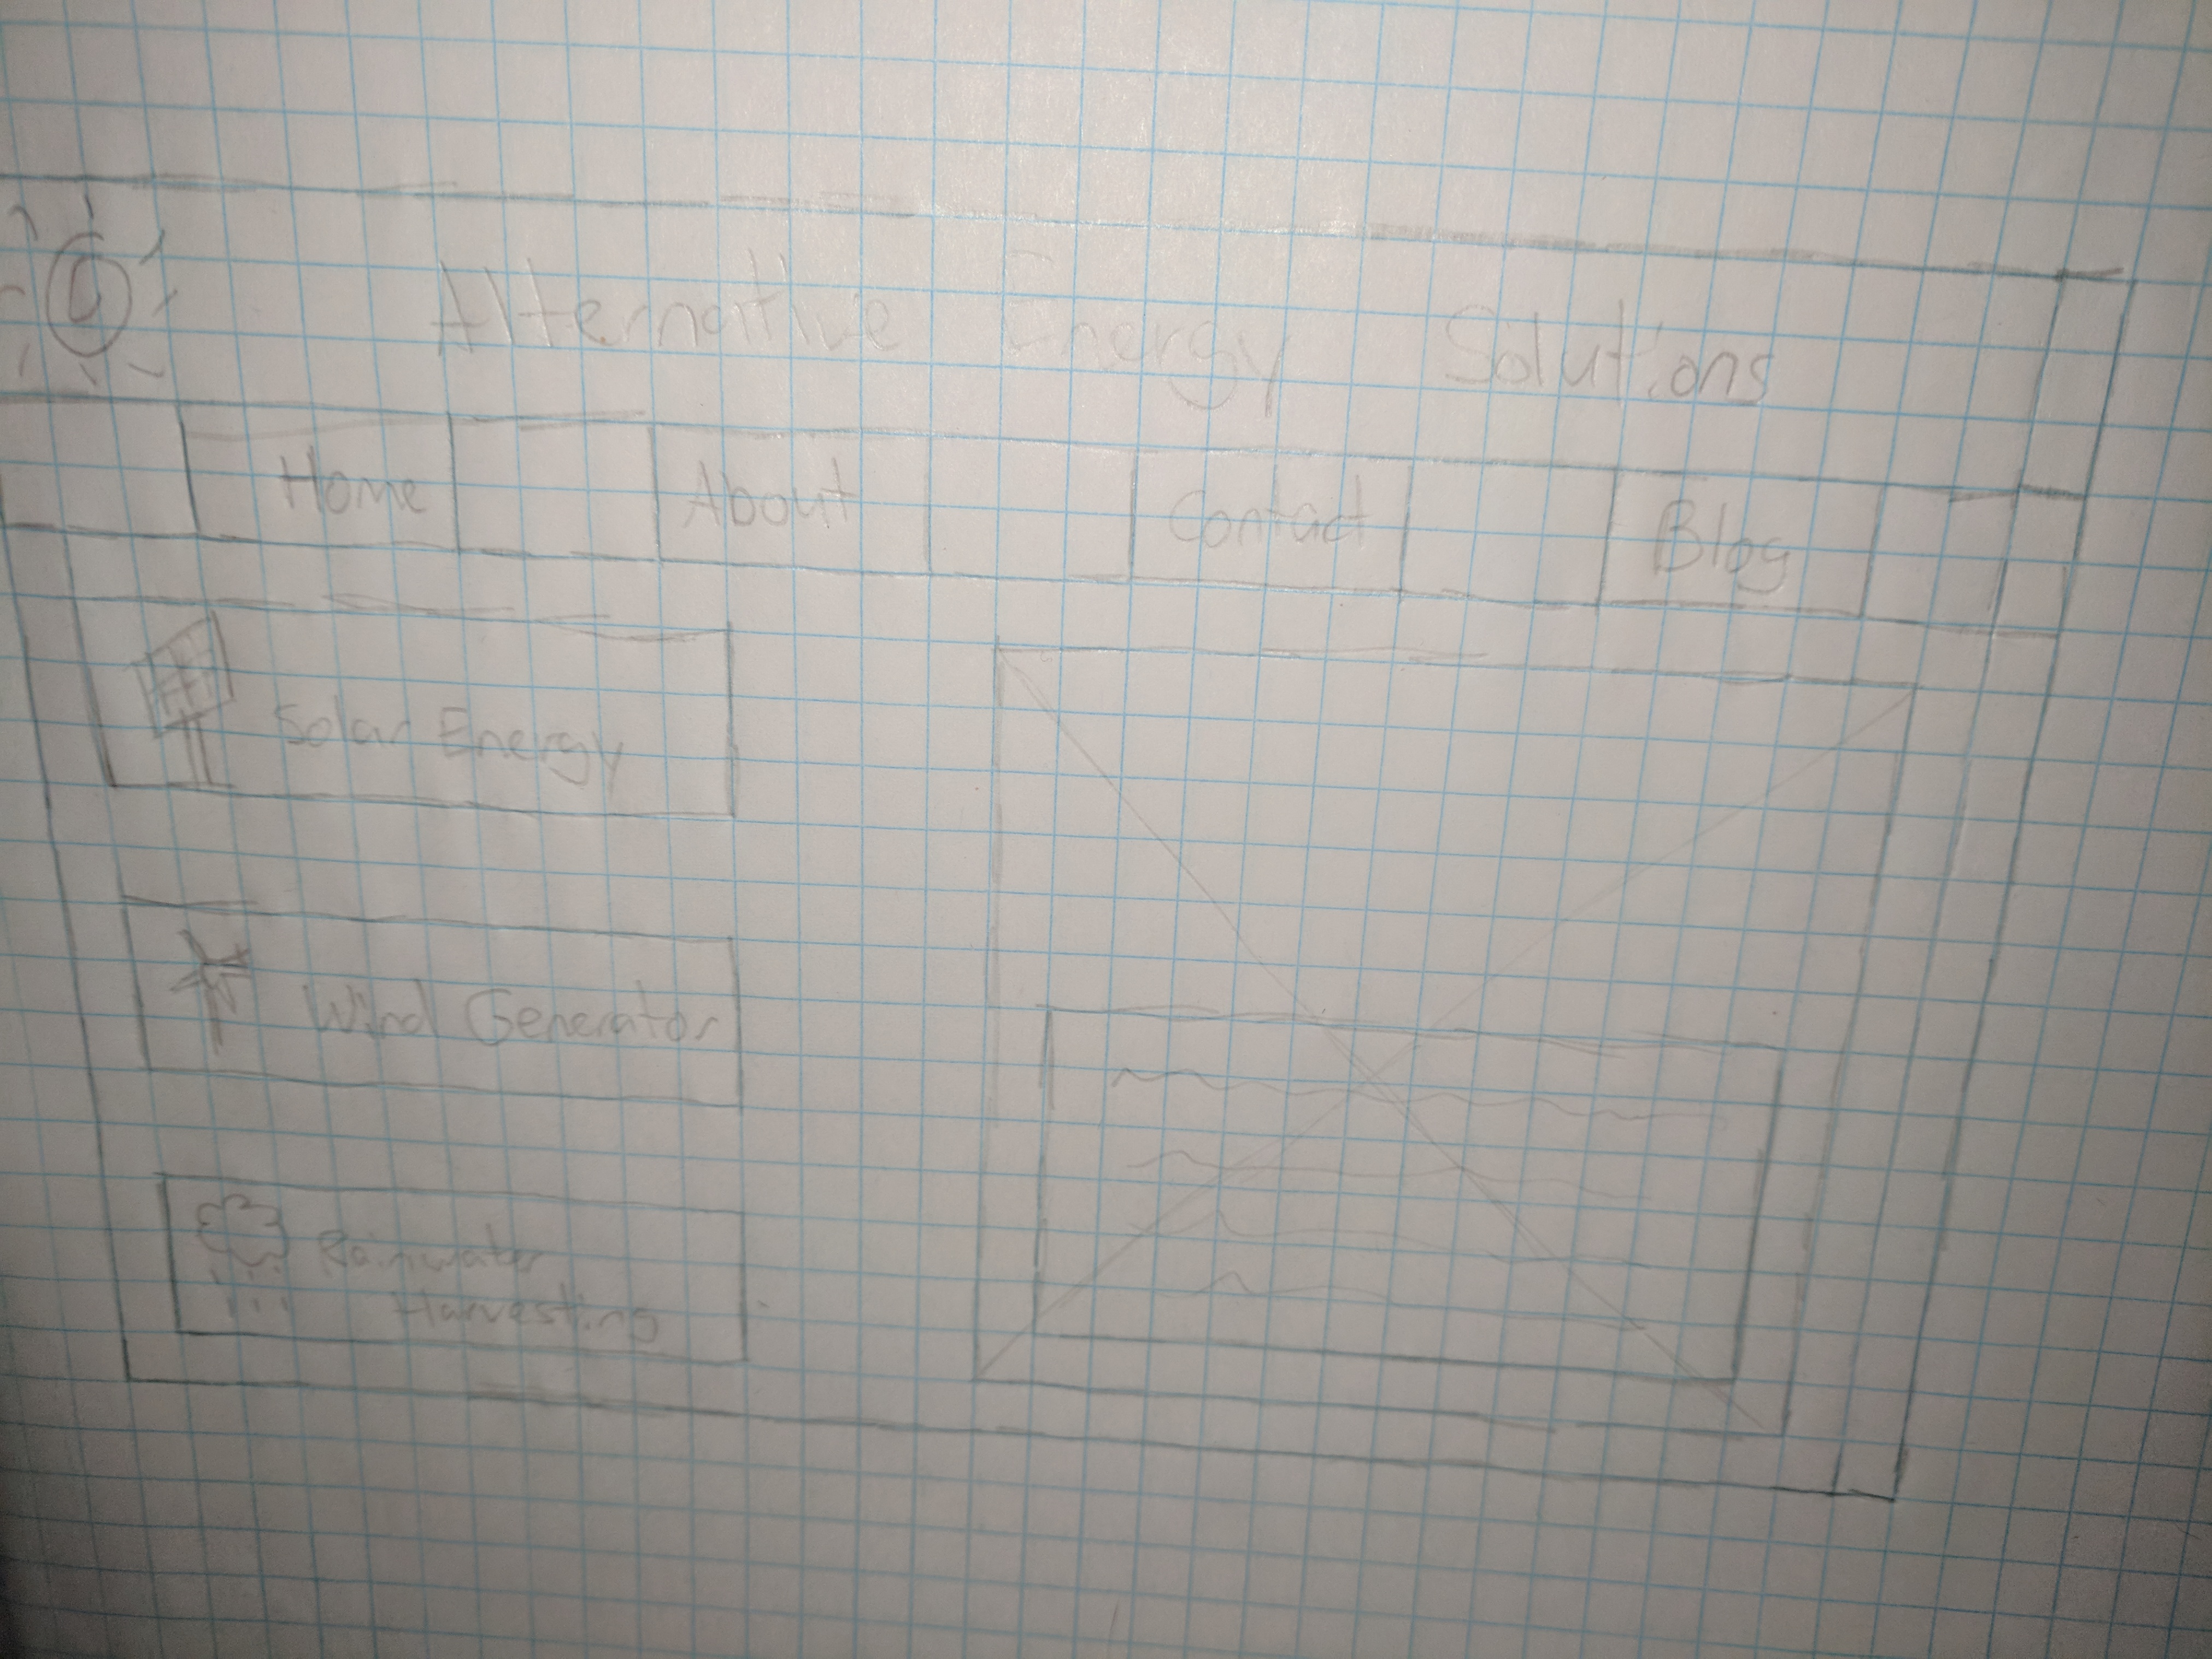 Alternative Energy Solutions
Home About Contact Blog
Solar Energy
Wind Generator
Rainwater
Harvesting